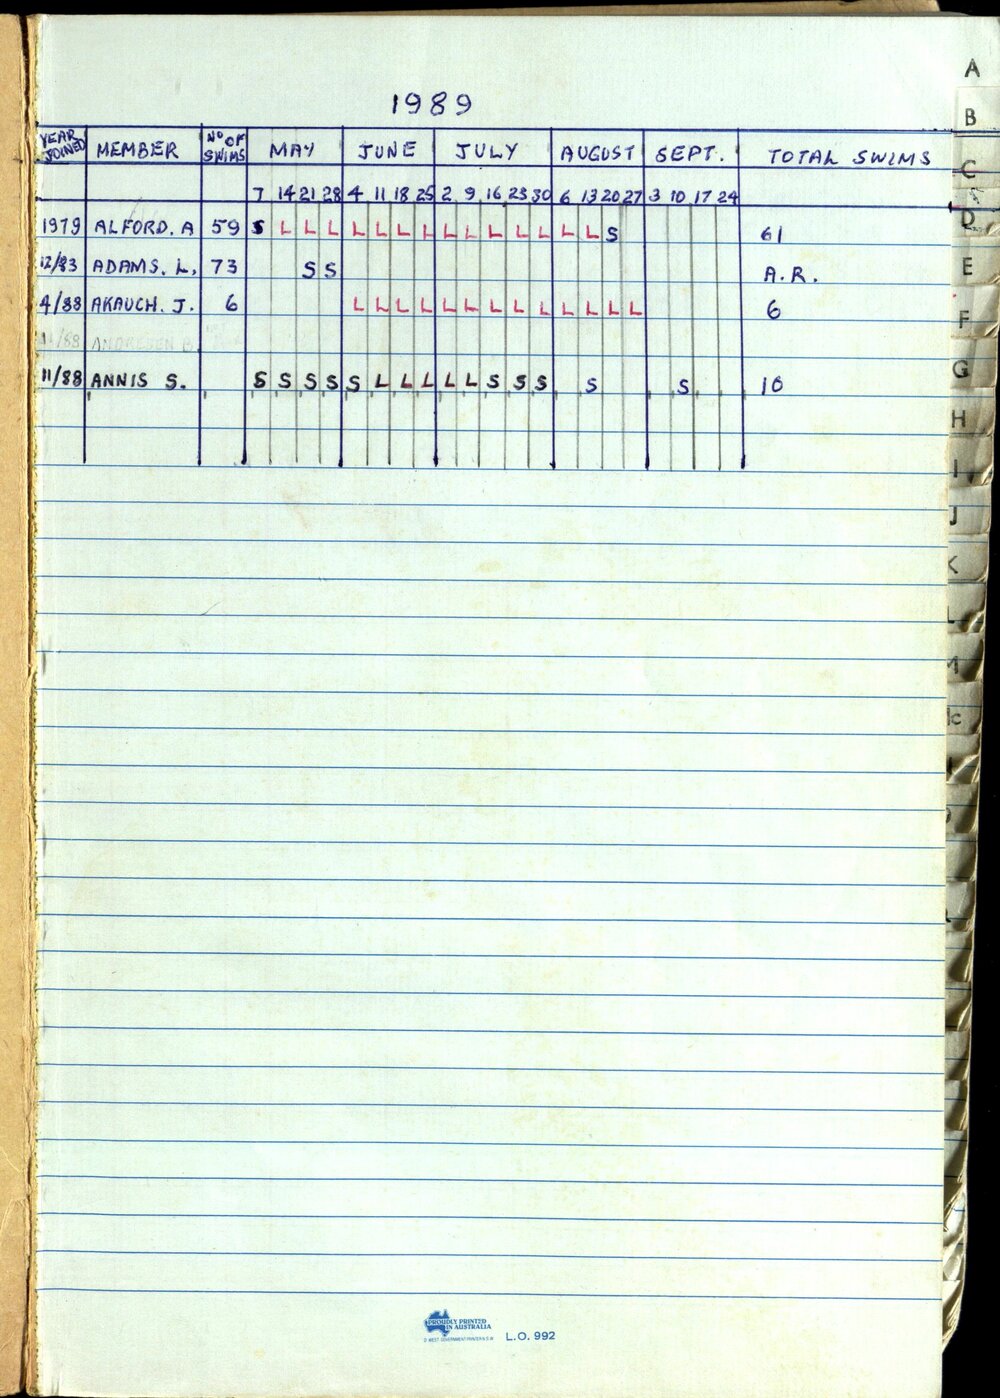 1989
YEAR JOINED MEMBER NO OF SWIMS MAY JUNE JULY AUGUST SEPT. TOTAL SWIMS
7 14 21 28 4 11 18 25 2 9 16 23 30 6 13 20 27 3 10 17 24
1979 ALFORD. A 59 S L L L L L L L L L L L L L L S 61
12/83 ADAMS. L, 73 S S A.R.
4/88 AKAUCH. J. 6 L L L L L L L L L L L L L 6
11/88 ANDRESEN B.
11/88 ANNIS S. S S S S S L L L L L S S S S S 10
A
B
C
D
E
F
G
H
I
J
K
L
M
Mc
PROUDLY PRINTED
IN AUSTRALIA
L.O. 992